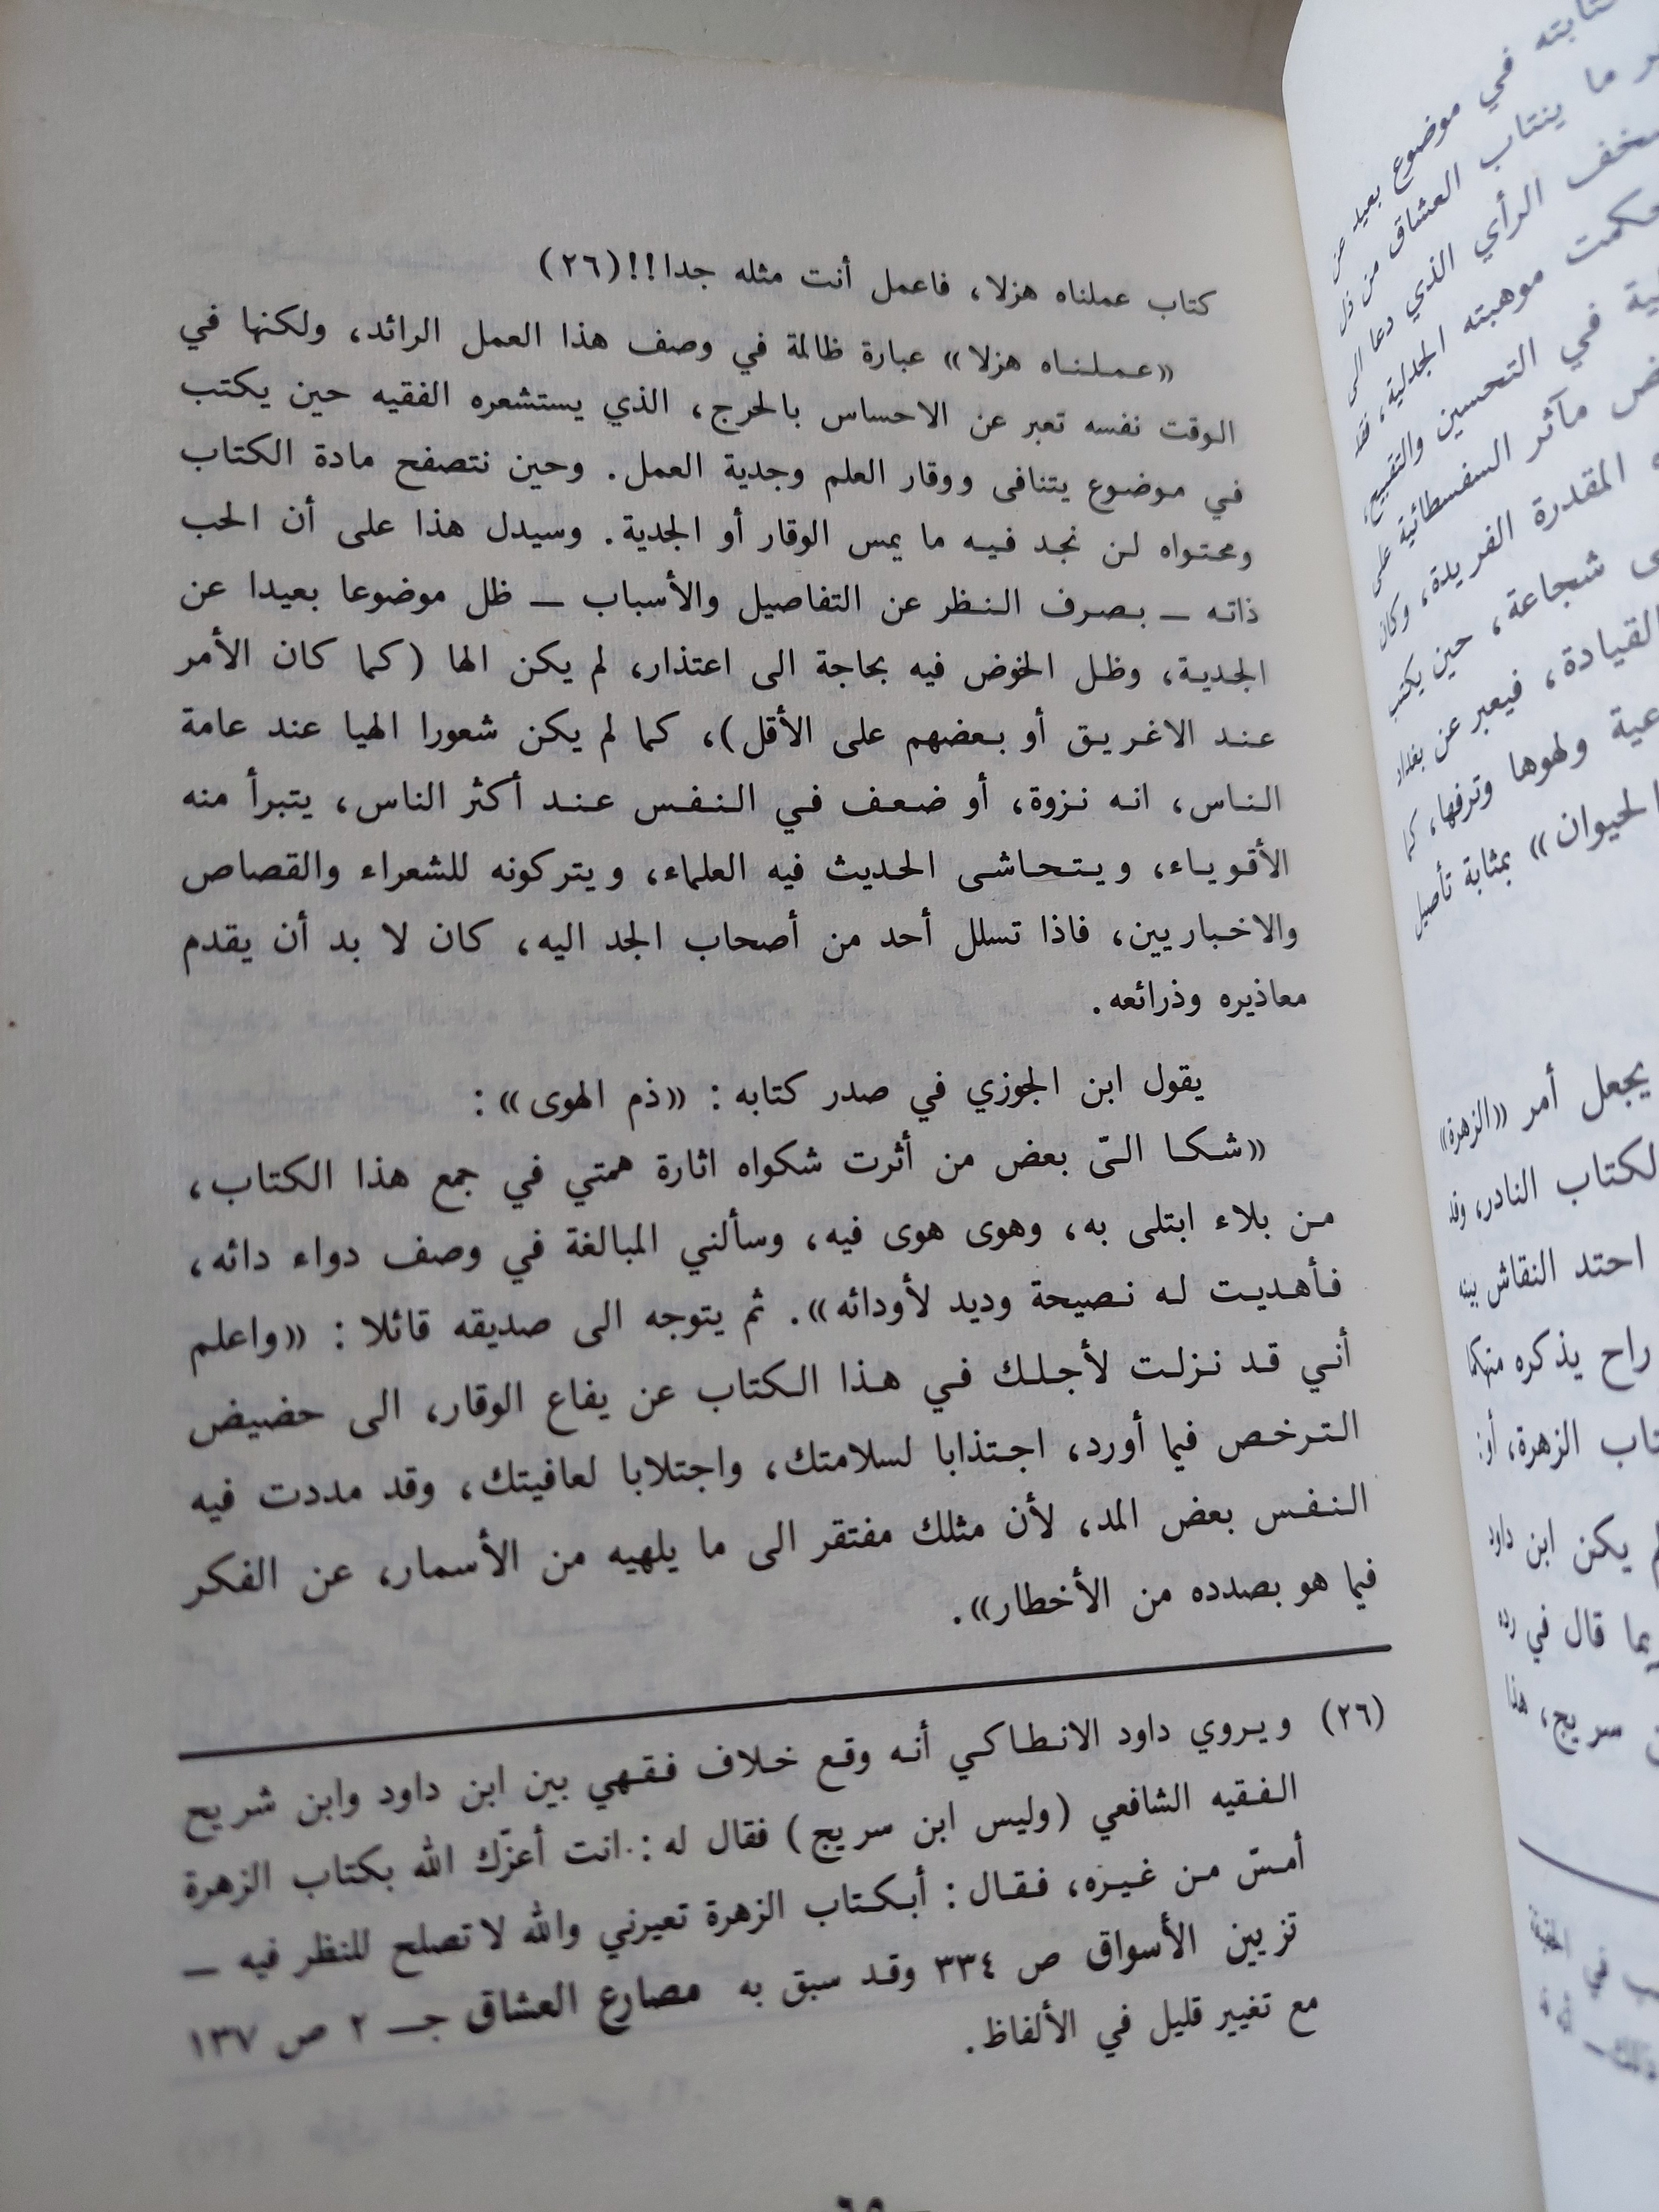 كتاب عملناه هزلا، فاعمل أنت مثله جدا!!(٢٦)
«عملناه هزلا» عبارة ظالمة في وصف هذا العمل الرائد، ولكنها في
الوقت نفسه تعبر عن الاحساس بالحرج، الذي يستشعره الفقيه حين يكتب
في موضوع يتنافى ووقار العلم وجدية العمل. وحين نتصفح مادة الكتاب
ومحتواه لن نجد فيه ما يمس الوقار أو الجدية. وسيدل هذا على أن الحب
ذاته — بصرف النظر عن التفاصيل والأسباب — ظل موضوعا بعيدا عن
الجدية، وظل الخوض فيه بحاجة الى اعتذار، لم يكن الها (كما كان الأمر
عند الاغريق أو بعضهم على الأقل)، كما لم يكن شعورا الهيا عند عامة
الناس، انه نزوة، أو ضعف في النفس عند أكثر الناس، يتبرأ منه
الأقوياء، ويتحاشى الحديث فيه العلماء، ويتركونه للشعراء والقصاص
والاخباريين، فاذا تسلل أحد من أصحاب الجد اليه، كان لا بد أن يقدم
معاذيره وذرائعه.
يقول ابن الجوزي في صدر كتابه: «ذم الهوى»:
«شكا الىّ بعض من أثرت شكواه اثارة همتي في جمع هذا الكتاب،
من بلاء ابتلى به، وهوى هوى فيه، وسألني المبالغة في وصف دواء دائه،
فأهديت له نصيحة وديد لأودائه». ثم يتوجه الى صديقه قائلا: «واعلم
أني قد نزلت لأجلك في هذا الكتاب عن يفاع الوقار، الى حضيض
الترخص فيما أورد، اجتذابا لسلامتك، واجتلابا لعافيتك، وقد مددت فيه
النفس بعض المد، لأن مثلك مفتقر الى ما يلهيه من الأسمار، عن الفكر
فيما هو بصدده من الأخطار».
(٢٦) ويروي داود الانطاكي أنه وقع خلاف فقهي بين ابن داود وابن شريح
الفقيه الشافعي (وليس ابن سريج) فقال له: انت أعزّك الله بكتاب الزهرة
أمسّ من غيره، فقال: أبكتاب الزهرة تعيرني والله لا تصلح للنظر فيه —
تزيين الأسواق ص ٣٣٤ وقد سبق به مصارع العشاق جـ ٢ ص ١٣٧
مع تغيير قليل في الألفاظ.
في موضوع بعيد عن
ما ينتاب العشاق من ذل
الرأي الذي دعا الى
موهبته الجدلية، فقد
في التحسين والتقبيح،
مآثر السفسطائية على
المقدرة الفريدة، وكان
شجاعة، حين يكتب
القيادة، فيعبر عن بغداد
ولهوها وترفها، كما
الحيوان» بمثابة تأصيل
يجعل أمر «الزهرة»
الكتاب النادر، وقد
احتد النقاش بينه
راح يذكره متهكما
الزهرة،
يكن ابن داود
بما قال في رده
سريج، هذا
في